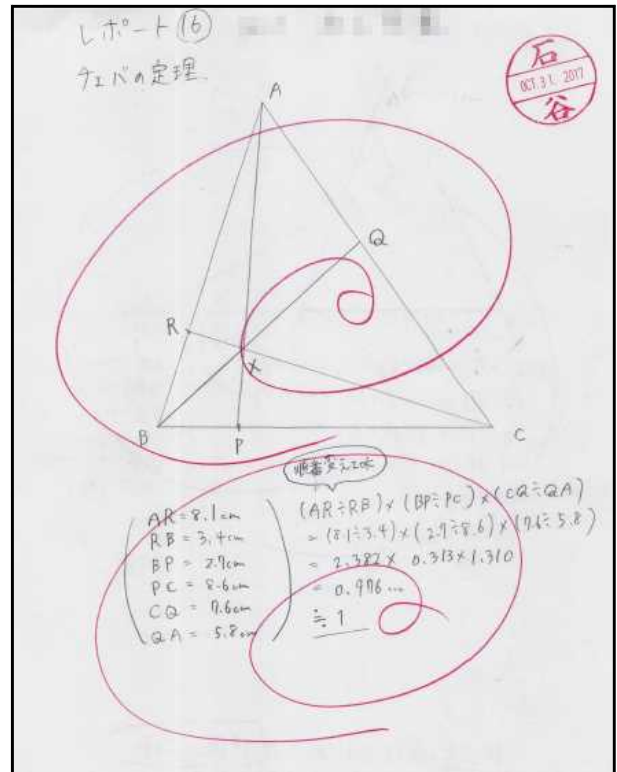 レポート⑯
チェバの定理.
石
OCT.31.2017
谷
A
Q
R
X
B
P
C
AR=8.1cm
RB=3.4cm
BP=2.7cm
PC=8.6cm
CQ=7.6cm
QA=5.8cm
(AR÷RB)×(BP÷PC)×(CQ÷QA)
=(8.1÷3.4)×(2.7÷8.6)×(7.6÷5.8)
=2.382×0.313×1.310
=0.976...
≒1